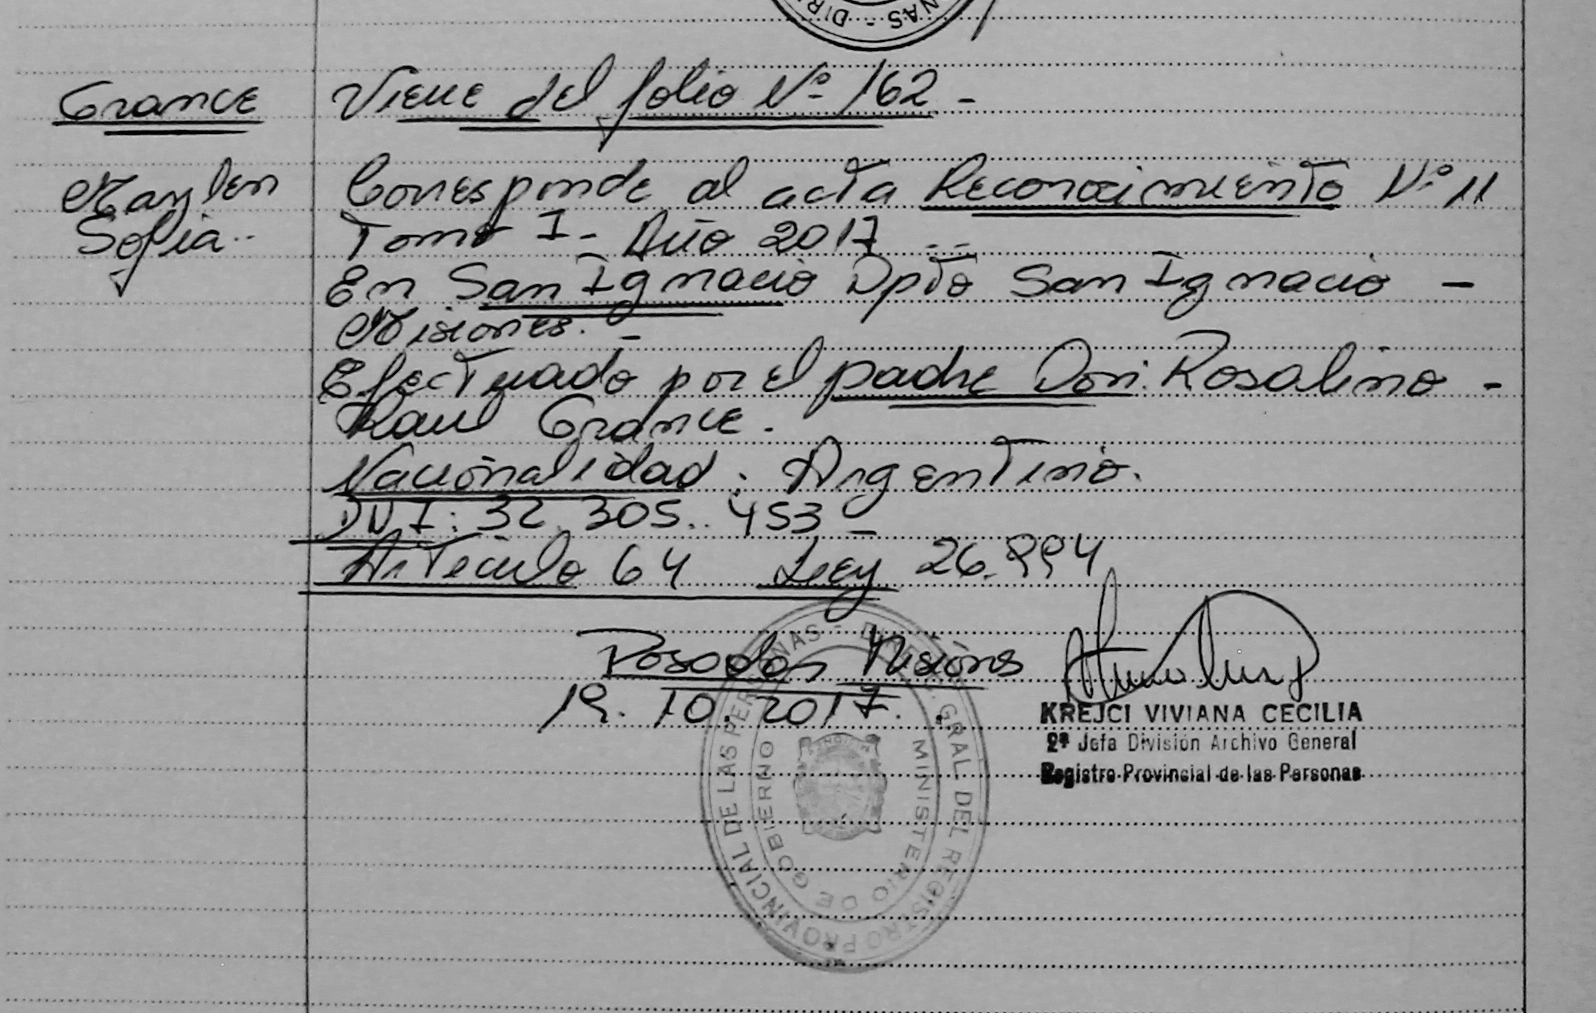 NAS - DIR
Grance
Viene del folio Nº 162 -
Maylen
Sofia..
Corresponde al acta Reconocimiento Nº 11
Tomo I - Año 2017 --
En San Ignacio Dpto San Ignacio -
Misiones. -
Efectuado por el padre Don: Rosalino -
Raul Grance.
Nacionalidad: Argentino.
DNI: 32.305.453 -
Articulo 64 Ley 26.994
Posadas Misiones
19.10.2017.
KREJCI VIVIANA CECILIA
2ª Jefa División Archivo General
Registro Provincial de las Personas
DIREC. GRAL. DEL REGISTRO PROVINCIAL DE LAS PERSONAS -
MINISTERIO DE GOBIERNO